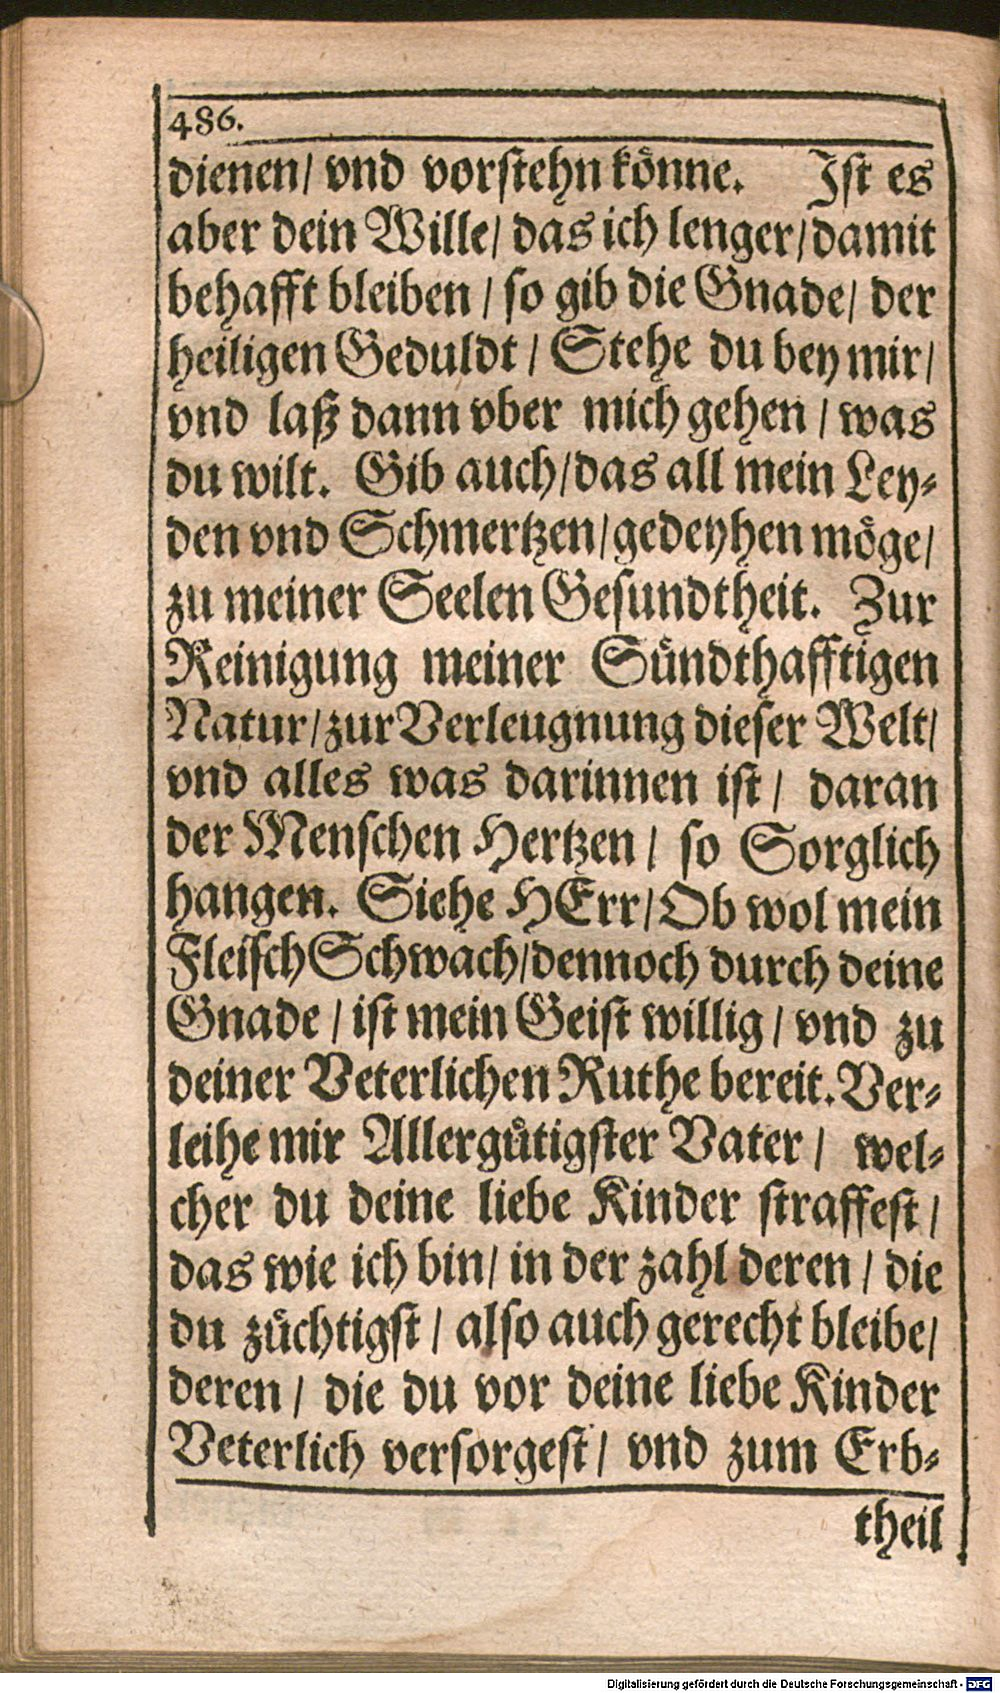 486.
dienen/ vnd vorstehn könne. Ist es
aber dein Wille/ das ich lenger/damit
behafft bleiben / so gib die Gnade/ der
heiligen Geduldt / Stehe du bey mir/
vnd laß dann vber mich gehen / was
du wilt. Gib auch/das all mein Ley-
den vnd Schmertzen/gedeyhen möge/
zu meiner Seelen Gesundtheit. Zur
Reinigung meiner Sündthafftigen
Natur/zur Verleugnung dieser Welt/
vnd alles was darinnen ist / daran
der Menschen Hertzen / so Sorglich
hangen. Siehe HErr/Ob wol mein
Fleisch Schwach/dennoch durch deine
Gnade / ist mein Geist willig / vnd zu
deiner Veterlichen Ruthe bereit. Ver-
leihe mir Allergütigster Vater / wel-
cher du deine liebe Kinder straffest /
das wie ich bin/ in der zahl deren / die
du züchtigst / also auch gerecht bleibe/
deren / die du vor deine liebe Kinder
Veterlich versorgest / vnd zum Erb-
theil
Digitalisierung gefördert durch die Deutsche Forschungsgemeinschaft - DFG